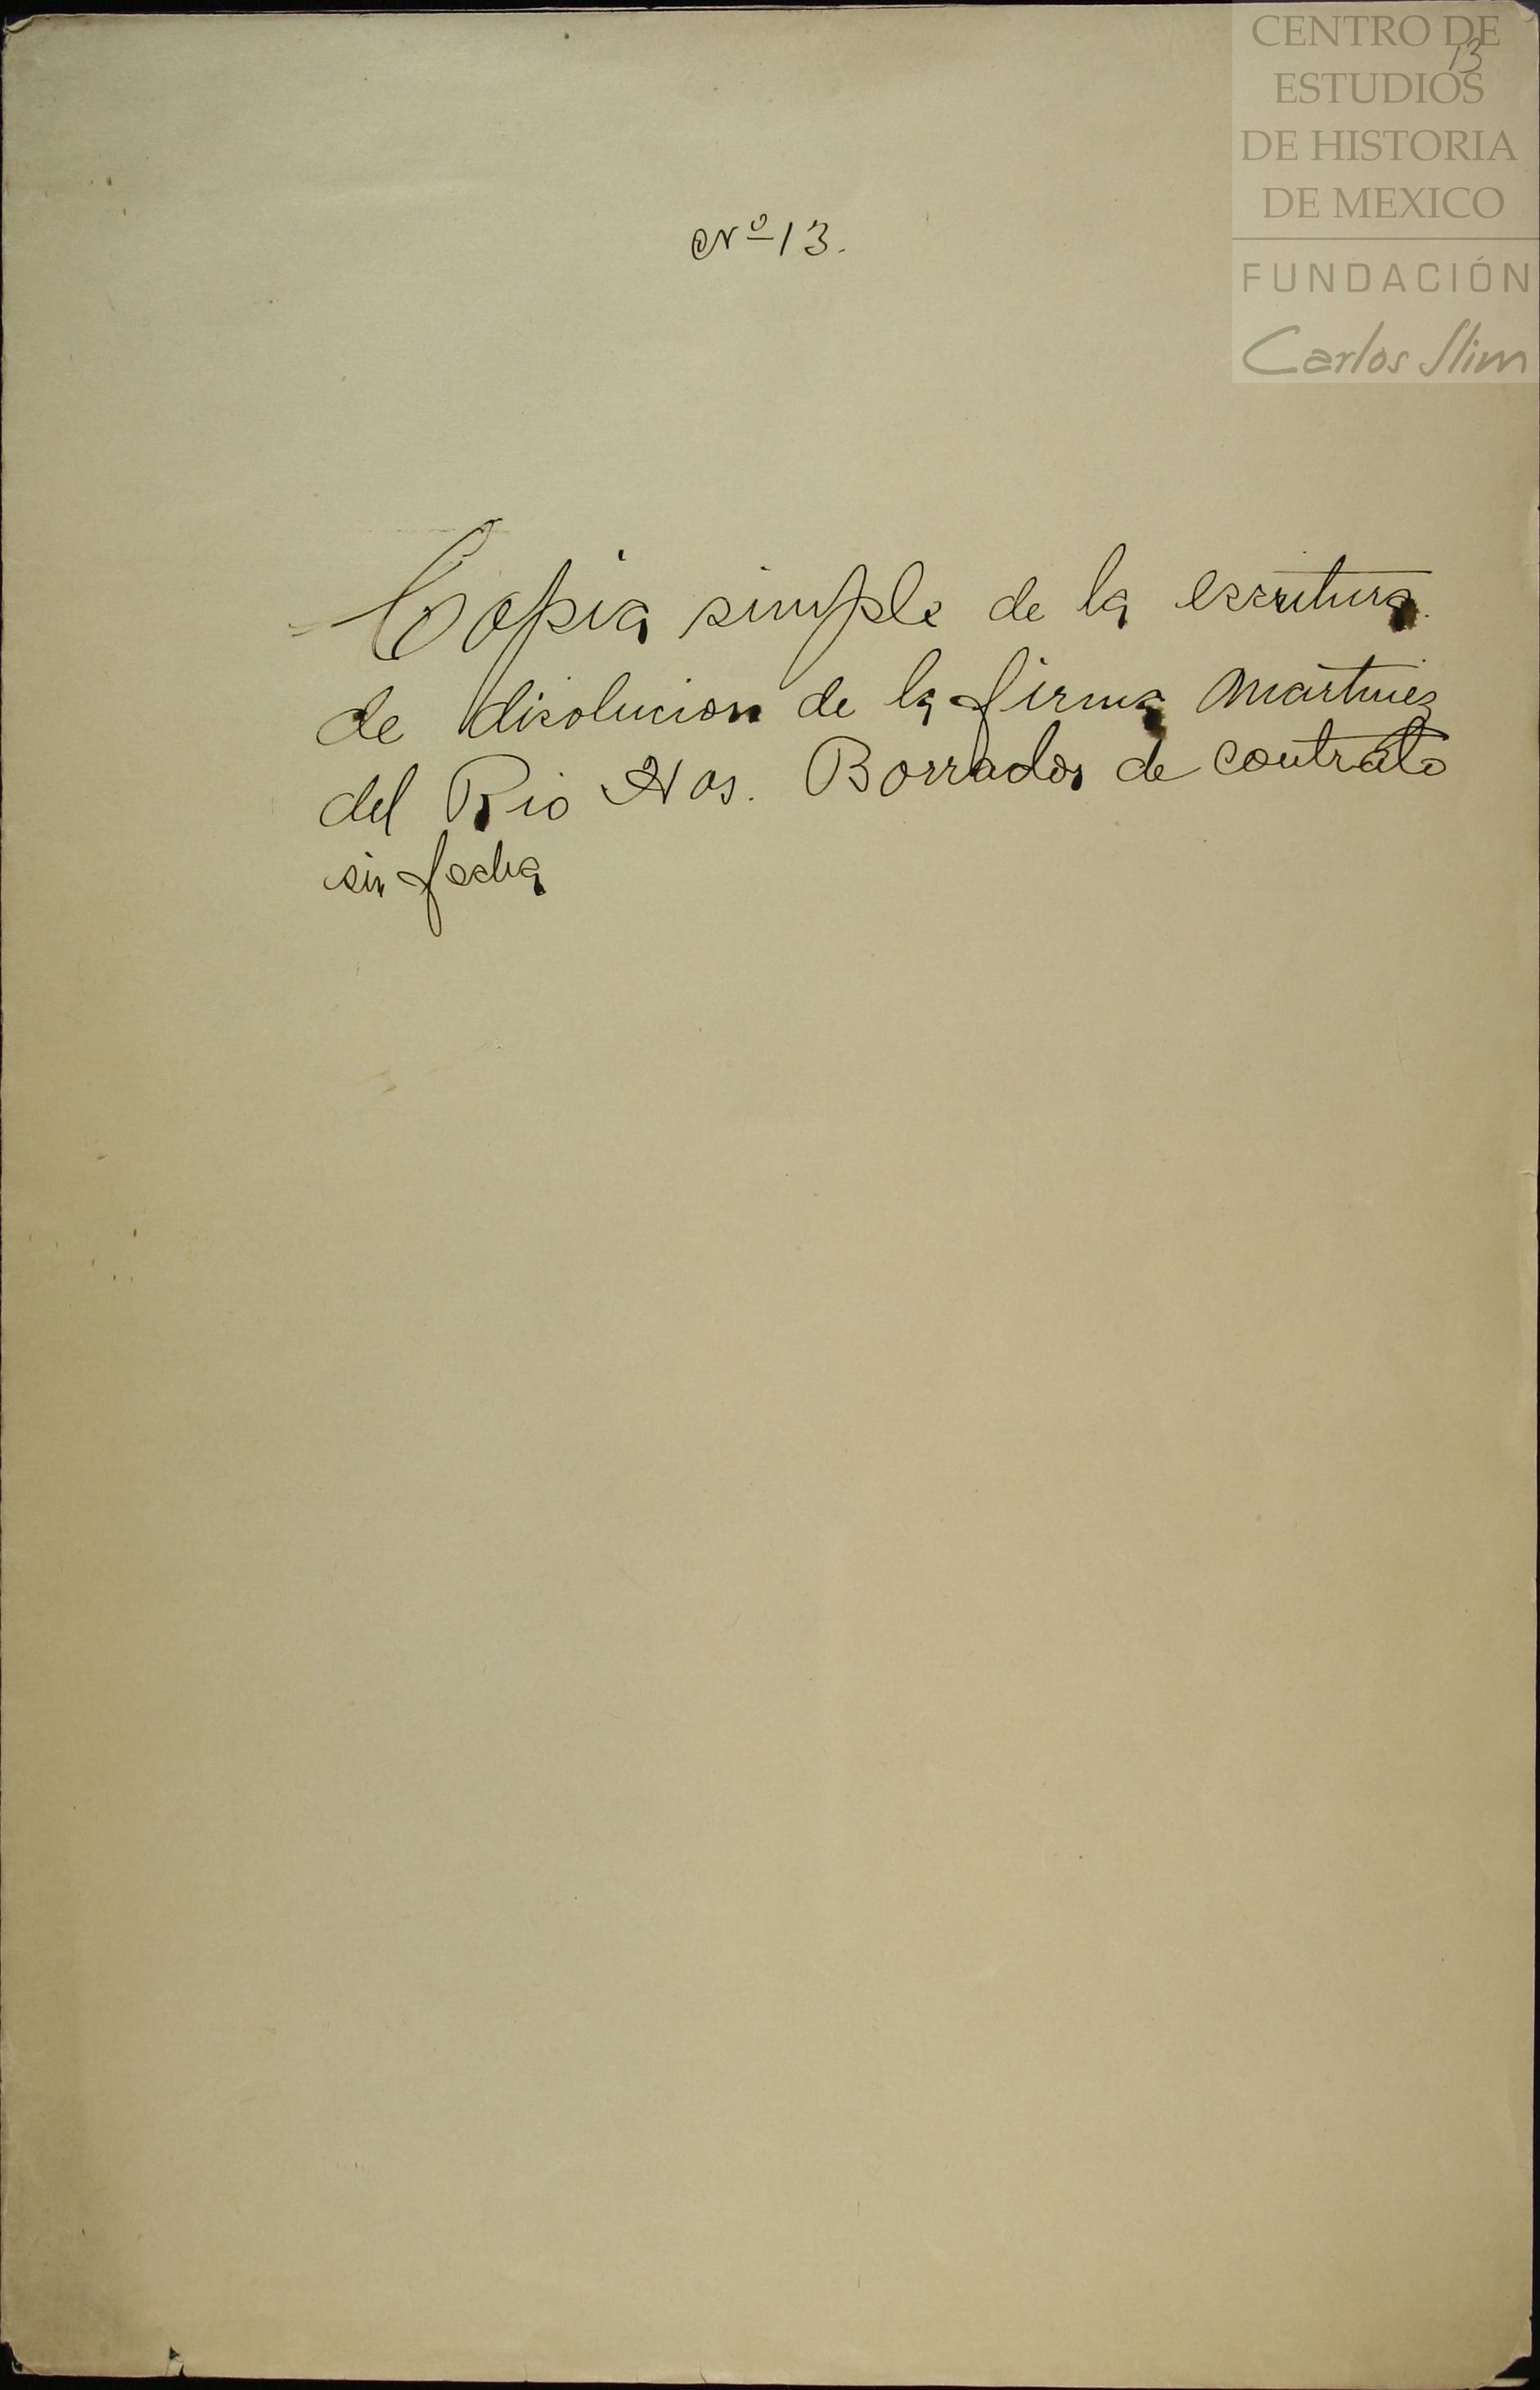 CENTRO DE
13
ESTUDIOS
DE HISTORIA
DE MEXICO
FUNDACIÓN
Carlos Slim
Nº 13.
Copia simple de la escritura
de disolucion de la firma Martinez
del Rio Hos. Borrador de contrato
sin fecha